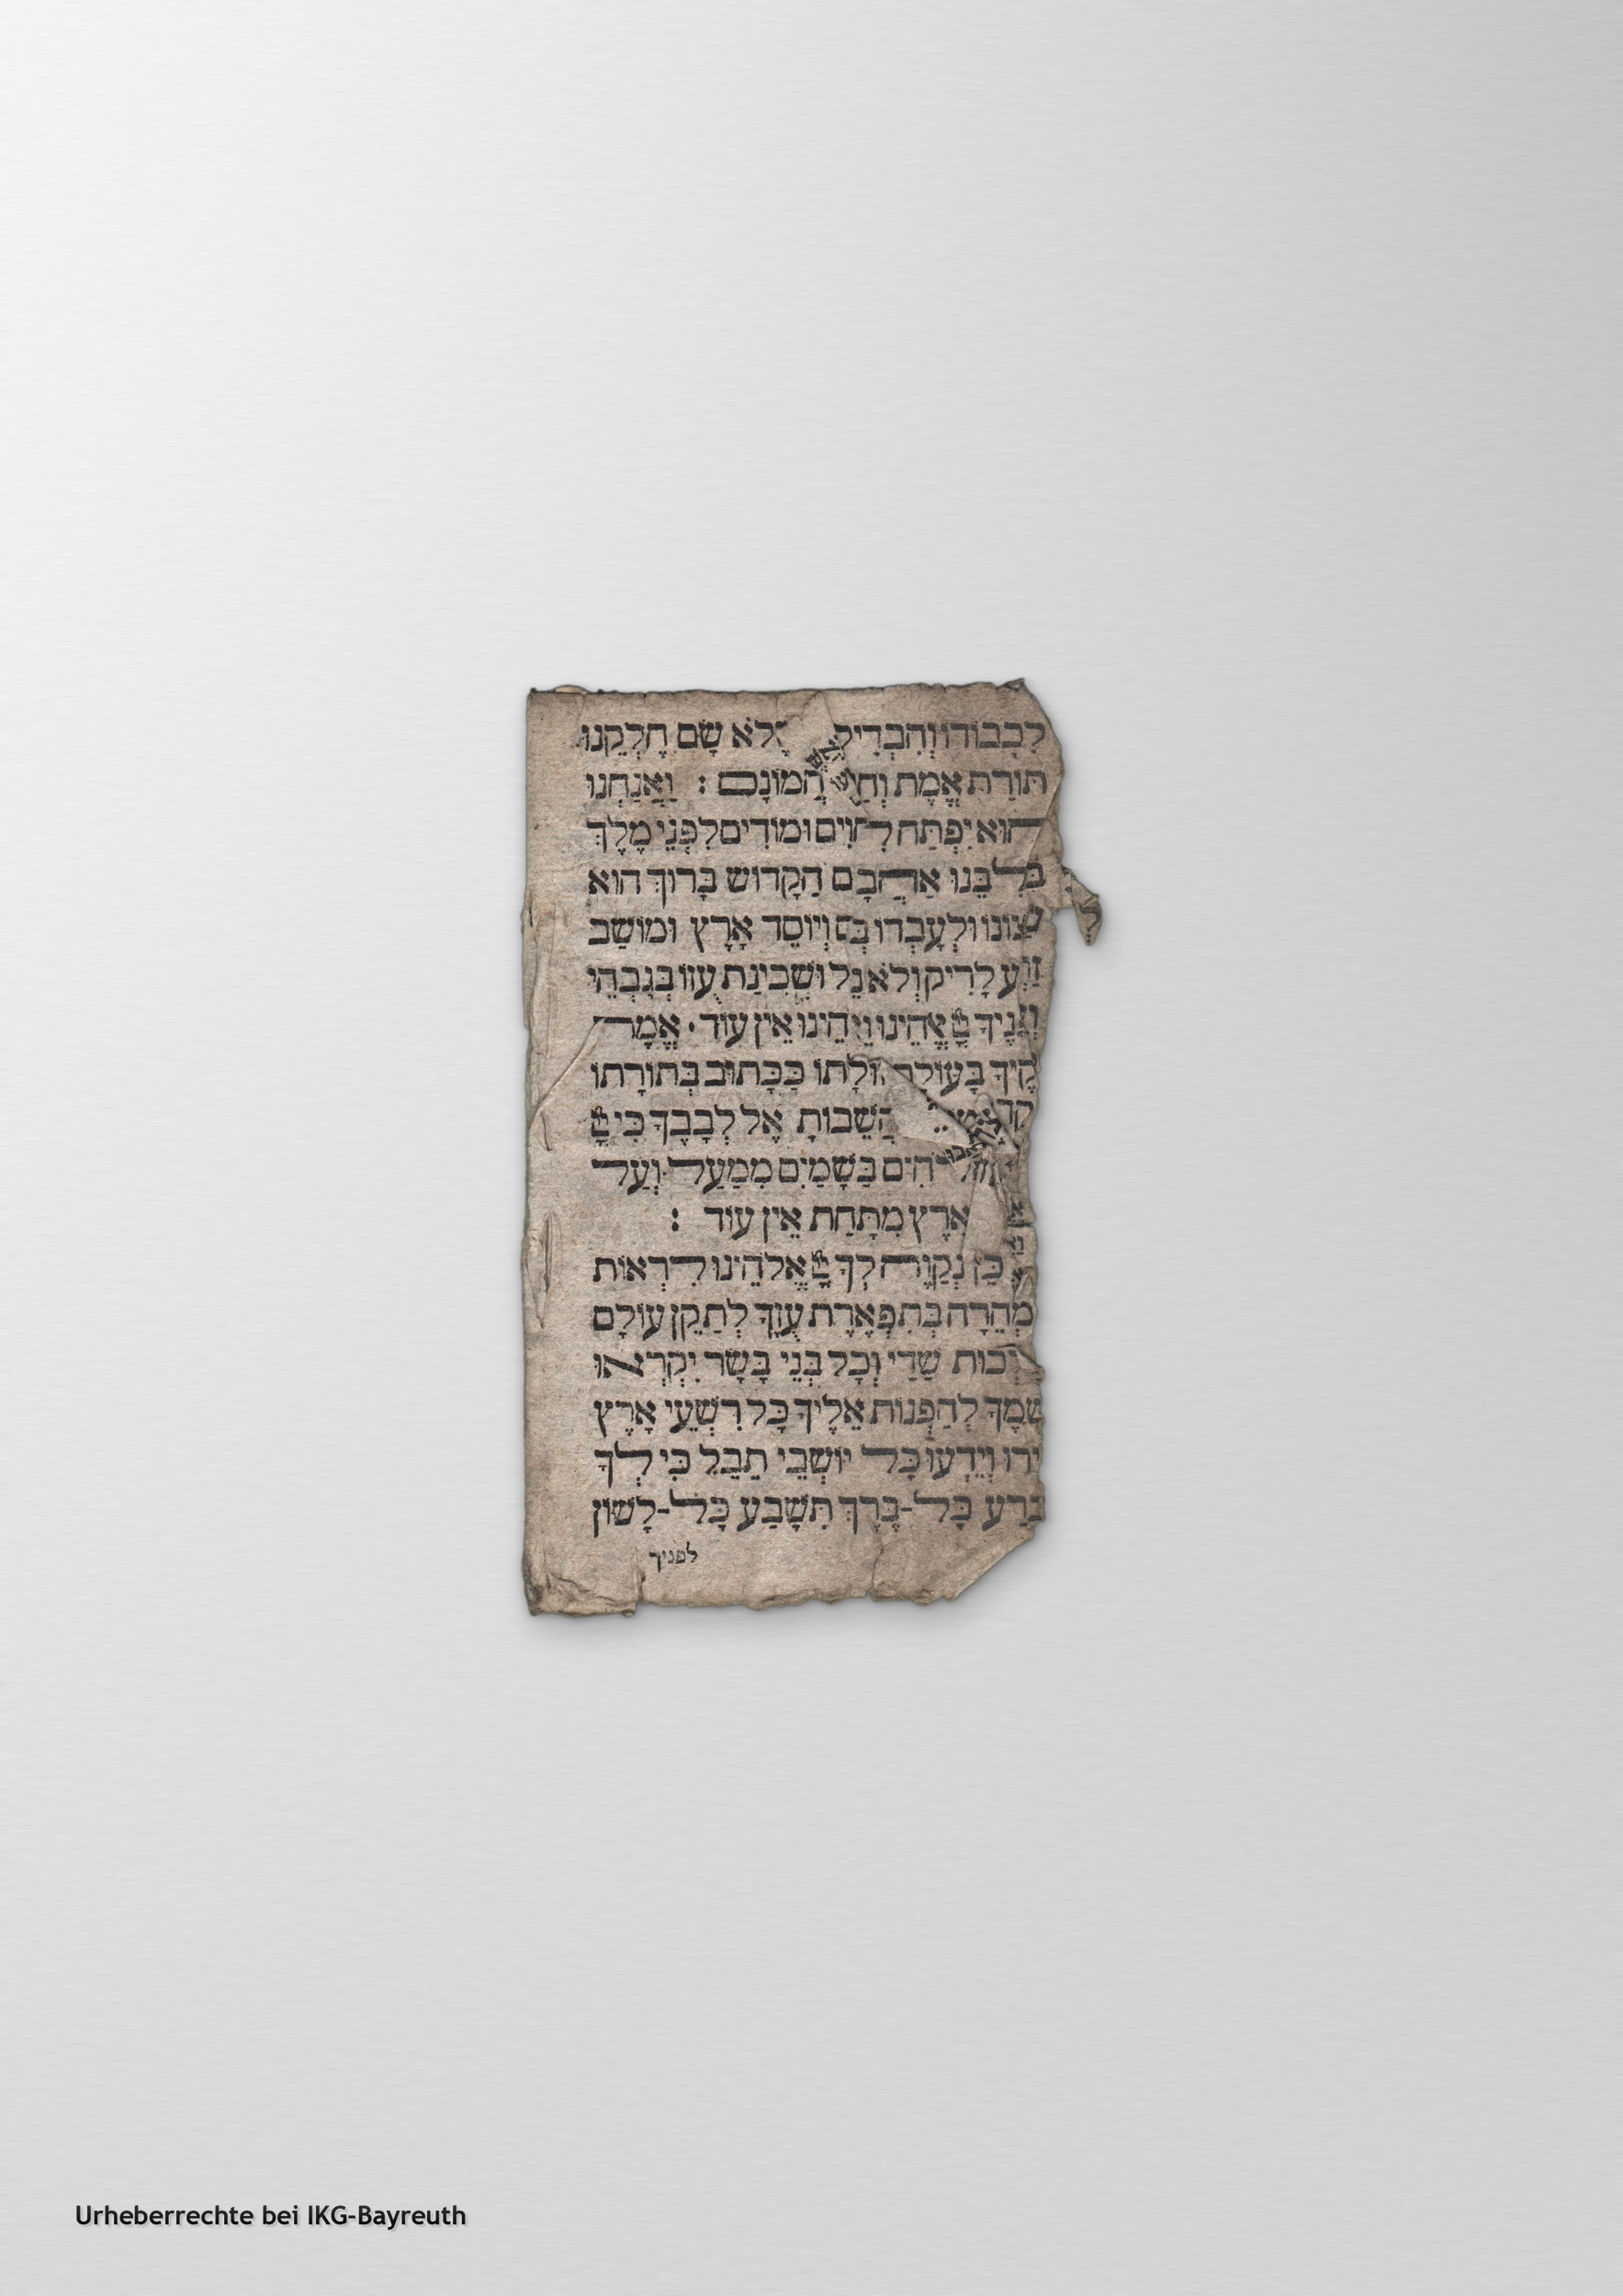 לִכְבוֹדוֹ וְהִבְדִּיל שֶׁלֹּא שָׂם חֶלְקֵנוּ
תּוֹרַת אֱמֶת וְחַיֵּי הֲמוֹנָם : וַאֲנַחְנוּ
הוּא יִפְתַּח וּמוֹדִים לִפְנֵי מֶלֶךְ
הַקָּדוֹשׁ בָּרוּךְ הוּא
וּלְעָבְדוֹ וְיוֹסֵד אָרֶץ וּמוֹשַׁב
לָרִיק וְלֹא וּשְׁכִינַת עֻזּוֹ בְּגָבְהֵי
אֵין עוֹד · אֱמֶת
זוּלָתוֹ כַּכָּתוּב בְּתוֹרָתוֹ
וַהֲשֵׁבוֹתָ אֶל לְבָבֶךָ כִּי
בַּשָּׁמַיִם מִמַּעַל וְעַל
הָאָרֶץ מִתַּחַת אֵין עוֹד :
כֵּן נְקַוֶּה לְךָ אֱלֹהֵינוּ לִרְאוֹת
מְהֵרָה בְּתִפְאֶרֶת עֻזֶּךָ לְתַקֵּן עוֹלָם
שַׁדַּי וְכָל בְּנֵי בָשָׂר יִקְרְאוּ
שְׁמֶךָ לְהַפְנוֹת אֵלֶיךָ כָּל רִשְׁעֵי אָרֶץ
וְיֵדְעוּ כָּל יוֹשְׁבֵי תֵבֵל כִּי לְךָ
כָּל-בֶּרֶךְ תִּשָּׁבַע כָּל-לָשׁוֹן
לפניך
Urheberrechte bei IKG-Bayreuth